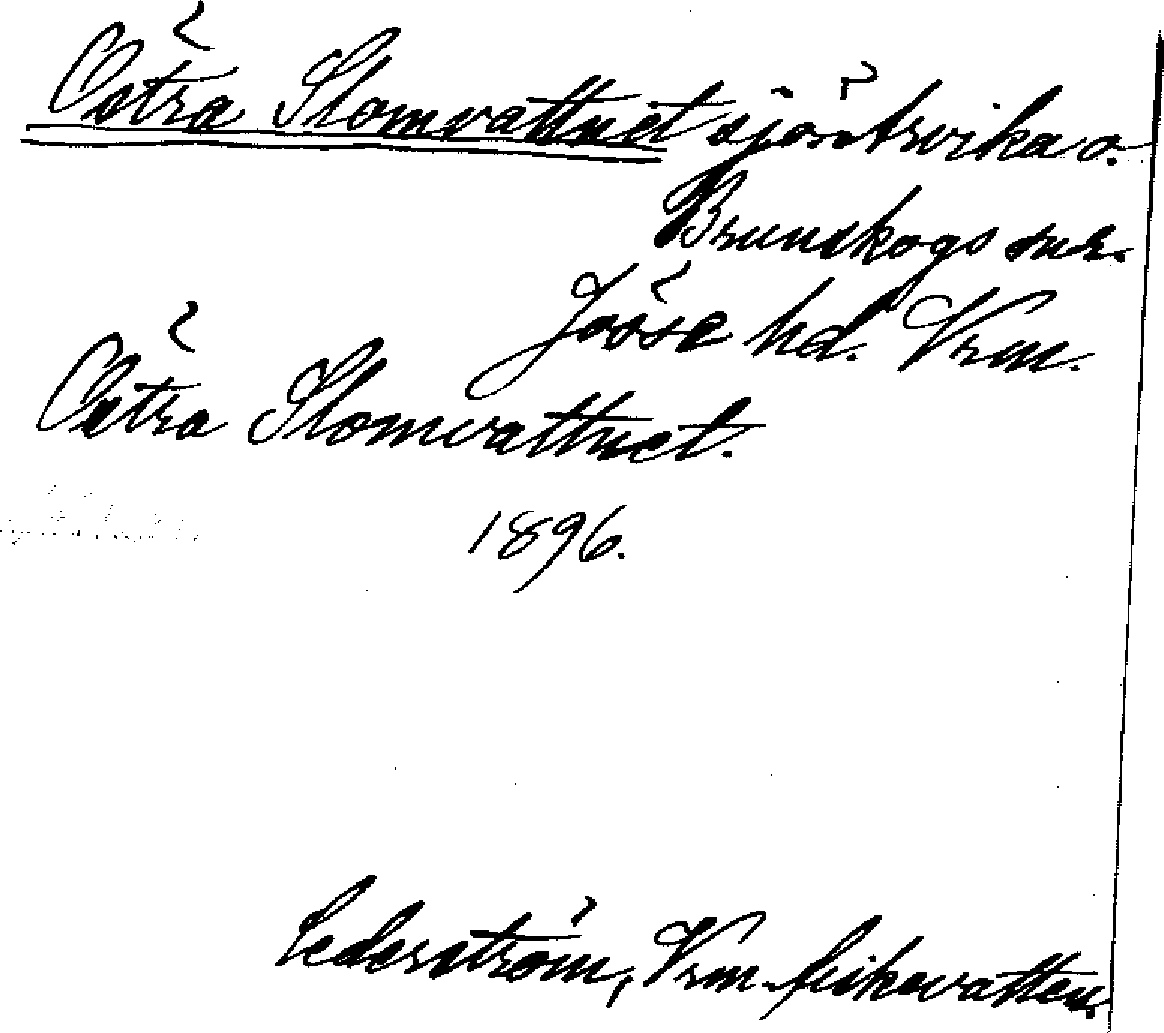 Östra Slomvattnet sjö i Arvika o.
Brunskogs snr.
Jösse hd. Vrm.
Östra Slomvattnet.
1896.
Cederström, Vrm. fiskevatten.